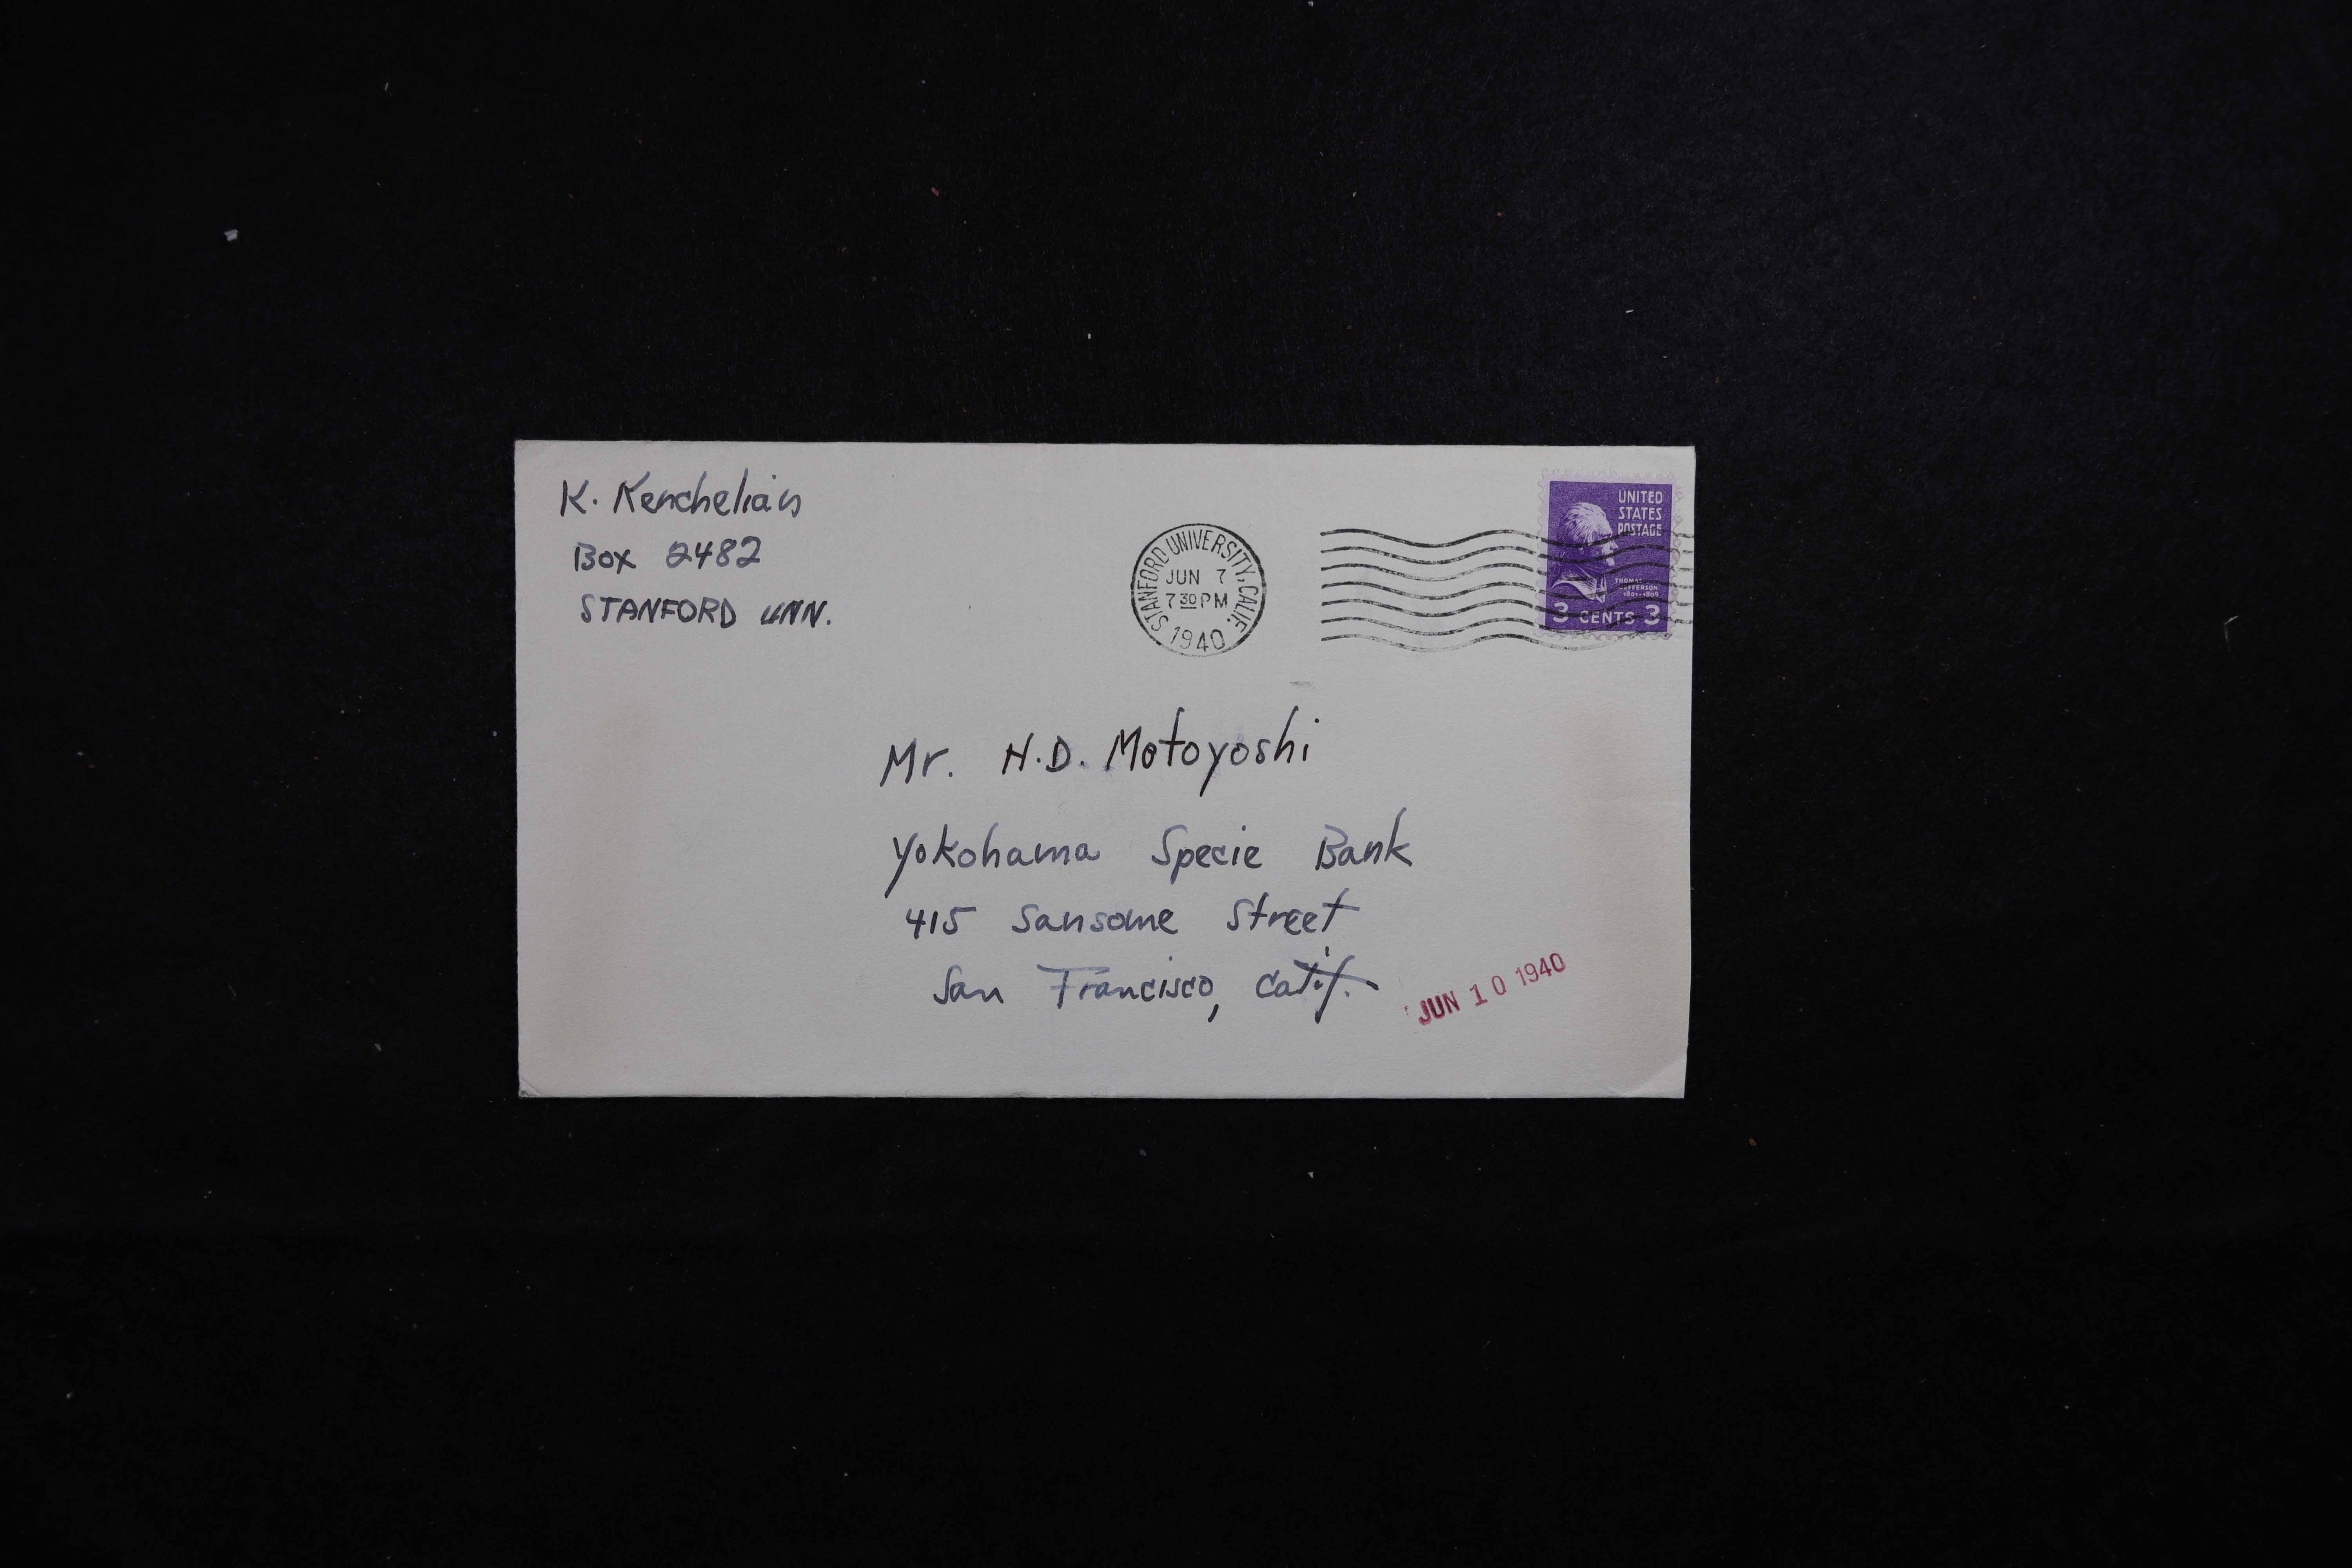 K. Kenchelian
Box 2482
STANFORD UNN.
STANFORD UNIVERSITY, CALIF.
JUN 7
7 30 PM
1940
UNITED
STATES
POSTAGE
THOMAS
JEFFERSON
1801-1809
3 CENTS 3
Mr. H.D. Motoyoshi
Yokohama Specie Bank
415 Sansome Street
San Francisco, Calif.
JUN 10 1940